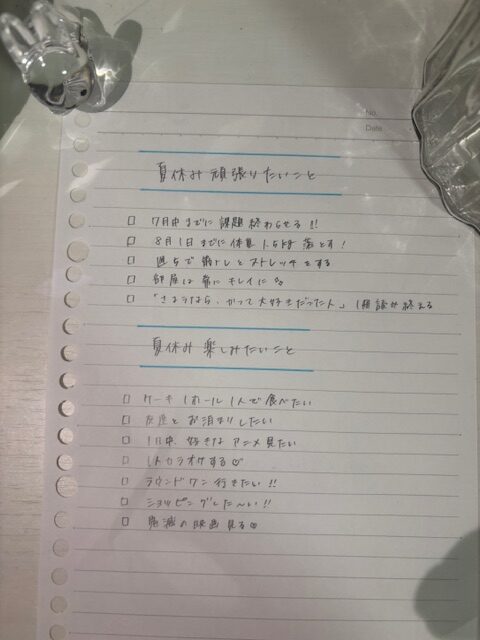 No.
Date
夏休み 頑張りたいこと
□ 7月中までに課題終わらせる!!
□ 8月1日までに体重1.5kg 落とす!
□ 週5で筋トレとストレッチをする
□ 部屋は常にキレイに。
□ 「さようなら、かつて大好きだった人」1冊読み終える
夏休み 楽しみたいこと
□ ケーキ 1ホール 1人で食べたい
□ 友達とお泊まりしたい
□ 1日中 好きな アニメ見たい
□ 1人カラオケする♡
□ ラウンドワン行きたい!!
□ ショッピングした〜い!!
□ 鬼滅の映画見る♡